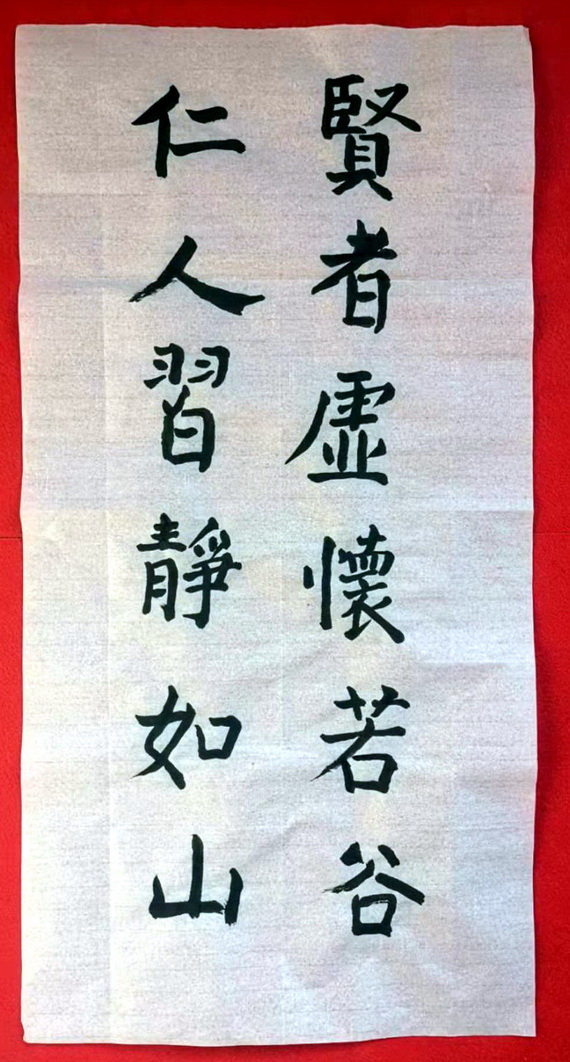 賢者虛懷若谷
仁人習靜如山